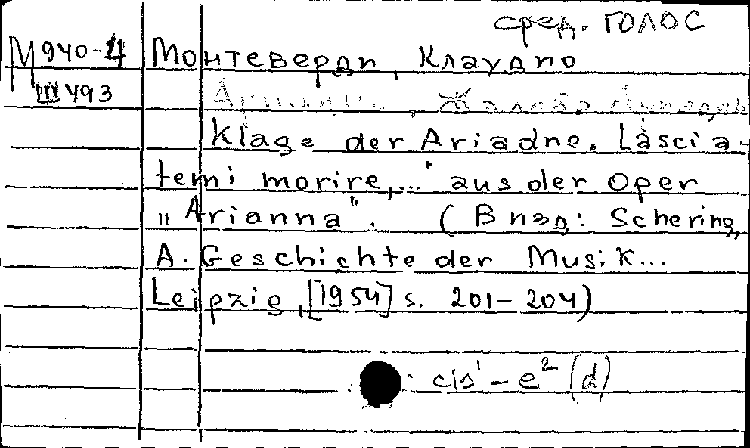 сред. ГОЛОС
М 940-4 Монтеверди, Клаудио
III 493
Klage der Ariadne. „Lascia-
temi morire,..." aus der Oper
„Arianna". (В изд: Schering,
A. Geschichte der Musik...
Leipzig, [1954] s. 201-204)
cis' - e² (d)